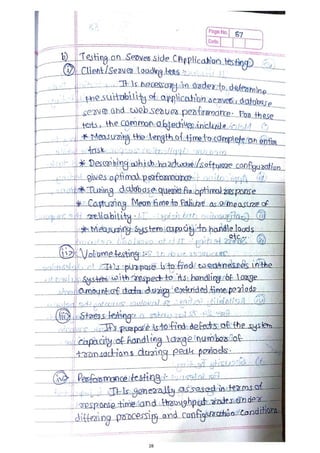 Page No. 57
Date
b) Testing on Server side (Application testing)
i) Client/Server loading tests
It is necessary in order to determine
the suitability of application server, database
server and web server performance. For these
tests, the common objectives include
* Measuring the length of time to complete an entire
task
* Describing which hardware/software configuration
gives optimal performance
* Tuning database queries for optimal response
* Capturing Mean time to Failure as a measure of
reliability
* Measuring system capacity to handle loads
etc.
ii) Volume testing
It's purpose is to find weaknesses in the
system with respect to its handling of large
amount of data during extended time periods
iii) Stress testing
It's purpose is to find defects of the system
capacity of handling large number of
transactions during peak periods.
iv) Performance testing
It is generally assessed in terms of
response time and throughput rates under
differing processing and configuration conditions
28